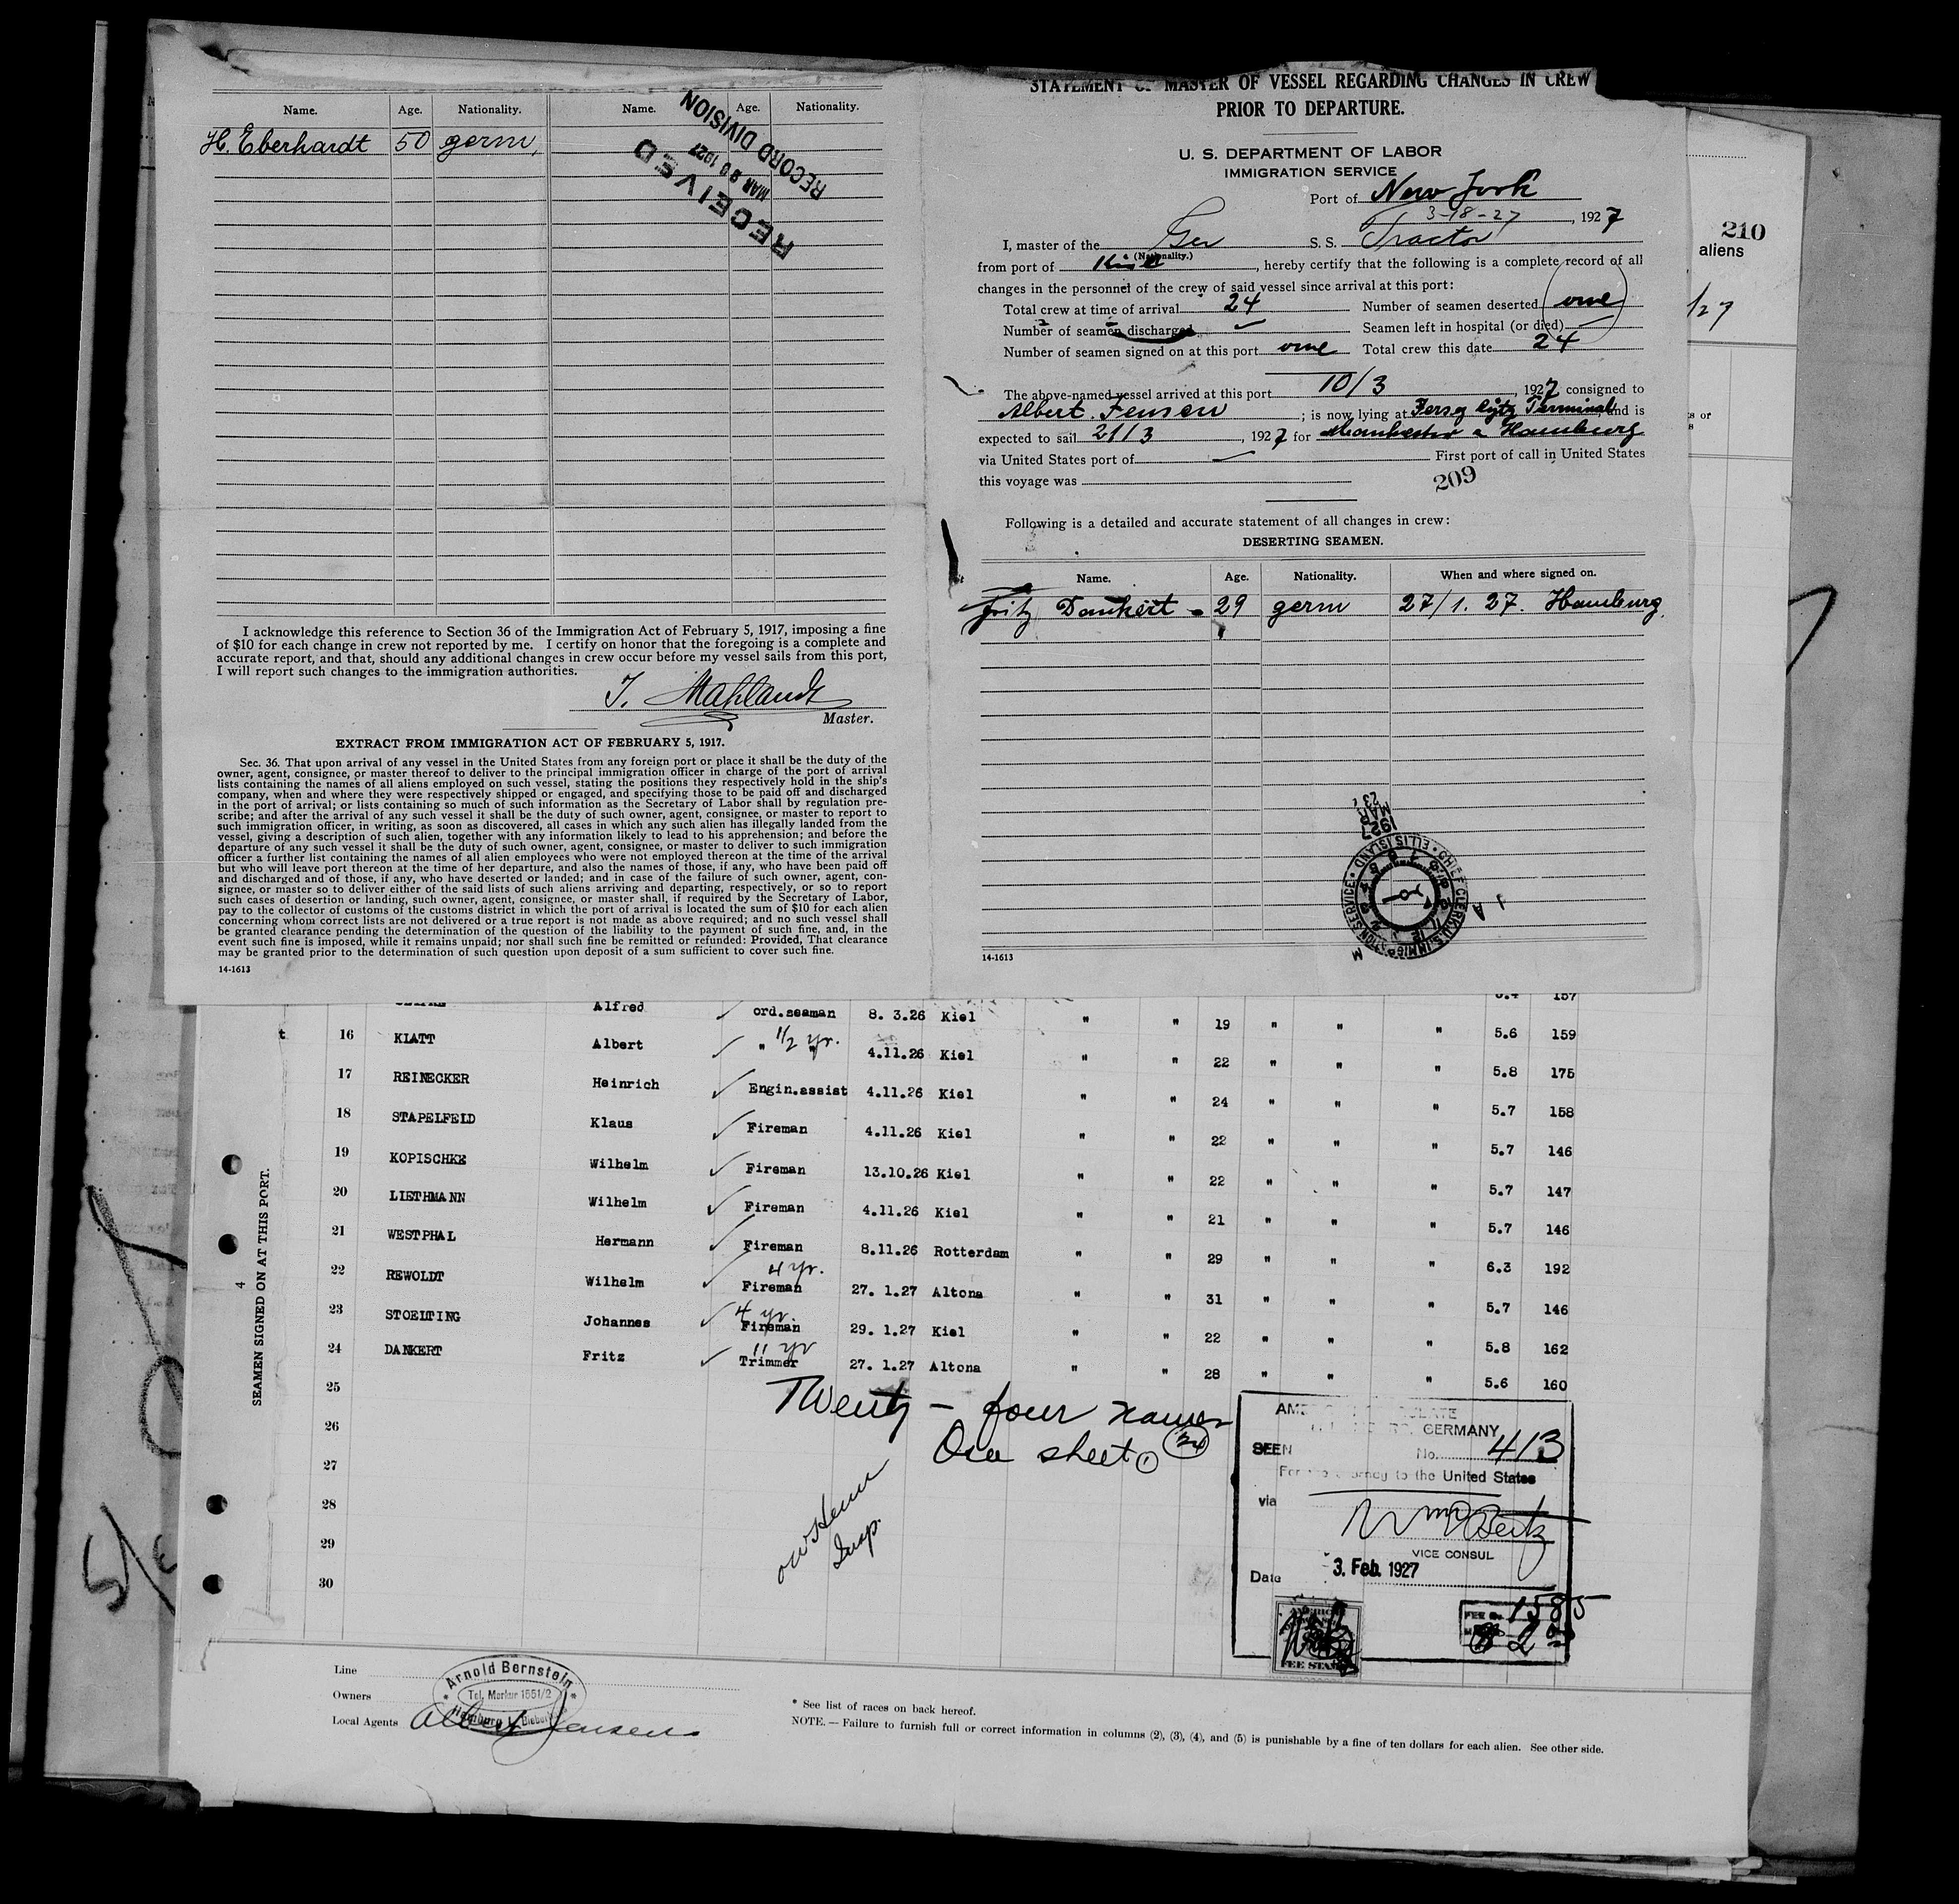 Name. Age. Nationality. Name. Age. Nationality.
H. Eberhardt 50 germ.
RECEIVED
MAR 1927
RECORD DIVISION
I acknowledge this reference to Section 36 of the Immigration Act of February 5, 1917, imposing a fine
of $10 for each change in crew not reported by me. I certify on honor that the foregoing is a complete and
accurate report, and that, should any additional changes in crew occur before my vessel sails from this port,
I will report such changes to the immigration authorities.
Master.
EXTRACT FROM IMMIGRATION ACT OF FEBRUARY 5, 1917.
Sec. 36. That upon arrival of any vessel in the United States from any foreign port or place it shall be the duty of the
owner, agent, consignee, or master thereof to deliver to the principal immigration officer in charge of the port of arrival
lists containing the names of all aliens employed on such vessel, stating the positions they respectively hold in the ship's
company, when and where they were respectively shipped or engaged, and specifying those to be paid off and discharged
in the port of arrival; or lists containing so much of such information as the Secretary of Labor shall by regulation pre-
scribe; and after the arrival of any such vessel it shall be the duty of such owner, agent, consignee, or master to report to
such immigration officer, in writing, as soon as discovered, all cases in which any such alien has illegally landed from the
vessel, giving a description of such alien, together with any information likely to lead to his apprehension; and before the
departure of any such vessel it shall be the duty of such owner, agent, consignee, or master to deliver to such immigration
officer a further list containing the names of all alien employees who were not employed thereon at the time of the arrival
but who will leave port thereon at the time of her departure, and also the names of those, if any, who have been paid off
and discharged and of those, if any, who have deserted or landed; and in case of the failure of such owner, agent, con-
signee, or master so to deliver either of the said lists of such aliens arriving and departing, respectively, or so to report
such cases of desertion or landing, such owner, agent, consignee, or master shall, if required by the Secretary of Labor,
pay to the collector of customs of the customs district in which the port of arrival is located the sum of $10 for each alien
concerning whom correct lists are not delivered or a true report is not made as above required; and no such vessel shall
be granted clearance pending the determination of the question of the liability to the payment of such fine, and, in the
event such fine is imposed, while it remains unpaid; nor shall such fine be remitted or refunded: Provided, That clearance
may be granted prior to the determination of such question upon deposit of a sum sufficient to cover such fine.
14-1613
STATEMENT OF MASTER OF VESSEL REGARDING CHANGES IN CREW
PRIOR TO DEPARTURE.
U. S. DEPARTMENT OF LABOR
IMMIGRATION SERVICE
Port of New York
3-18-27, 1927
I, master of the Ger S. S. Tractor
(Nationality.)
from port of Kiel, hereby certify that the following is a complete record of all
changes in the personnel of the crew of said vessel since arrival at this port:
Total crew at time of arrival 24 Number of seamen deserted one
Number of seamen discharged Seamen left in hospital (or died)
Number of seamen signed on at this port one Total crew this date 24
The above-named vessel arrived at this port 10/3, 1927 consigned to
Albert Jensen; is now lying at Jersey City Terminal and is
expected to sail 21/3, 1927 for Manchester a Hamburg
via United States port of First port of call in United States
this voyage was
209
Following is a detailed and accurate statement of all changes in crew:
DESERTING SEAMEN.
Name. Age. Nationality. When and where signed on.
Fritz Dankert 29 germ 27/1. 27. Hamburg
1927
MAR
23
CHIEF CLERK U.S. IMMIGRATION SERVICE ELLIS ISLAND
14-1613
210
aliens
Alfred ord.seaman 8. 3.26 Kiel " " 19 " " " 5.4 157
16 KLATT Albert " 1/2 yr. 4.11.26 Kiel " " 22 " " " 5.6 159
17 REINECKER Heinrich Engin.assist 4.11.26 Kiel " " 24 " " " 5.8 175
18 STAPELFELD Klaus Fireman 4.11.26 Kiel " " 22 " " " 5.7 158
19 KOPISCHKE Wilhelm Fireman 13.10.26 Kiel " " 22 " " " 5.7 146
20 LIETHMANN Wilhelm Fireman 4.11.26 Kiel " " 21 " " " 5.7 147
21 WESTPHAL Hermann Fireman 8.11.26 Rotterdam " " 29 " " " 5.7 146
22 REWOLDT Wilhelm 4 yr. Fireman 27. 1.27 Altona " " 31 " " " 6.3 192
23 STOELTING Johannes 4 yr. Fireman 29. 1.27 Kiel " " 22 " " " 5.7 146
24 DANKERT Fritz 11 yr Trimmer 27. 1.27 Altona " " 28 " " " 5.8 162
25 5.6 160
26
27
28
29
30
4
SEAMEN SIGNED ON AT THIS PORT.
Twenty - four names
One sheet 1 24
Insp.
GERMANY
SEEN No. 413
For the journey to the United States
via
VICE CONSUL
Date 3. Feb. 1927
FEE STAMP
FEE No. 1585
Line
Owners
Local Agents Albert Jensen
Arnold Bernstein
Tel. Merkur 1551/2
Hamburg
* See list of races on back hereof.
NOTE.—Failure to furnish full or correct information in columns (2), (3), (4), and (5) is punishable by a fine of ten dollars for each alien. See other side.